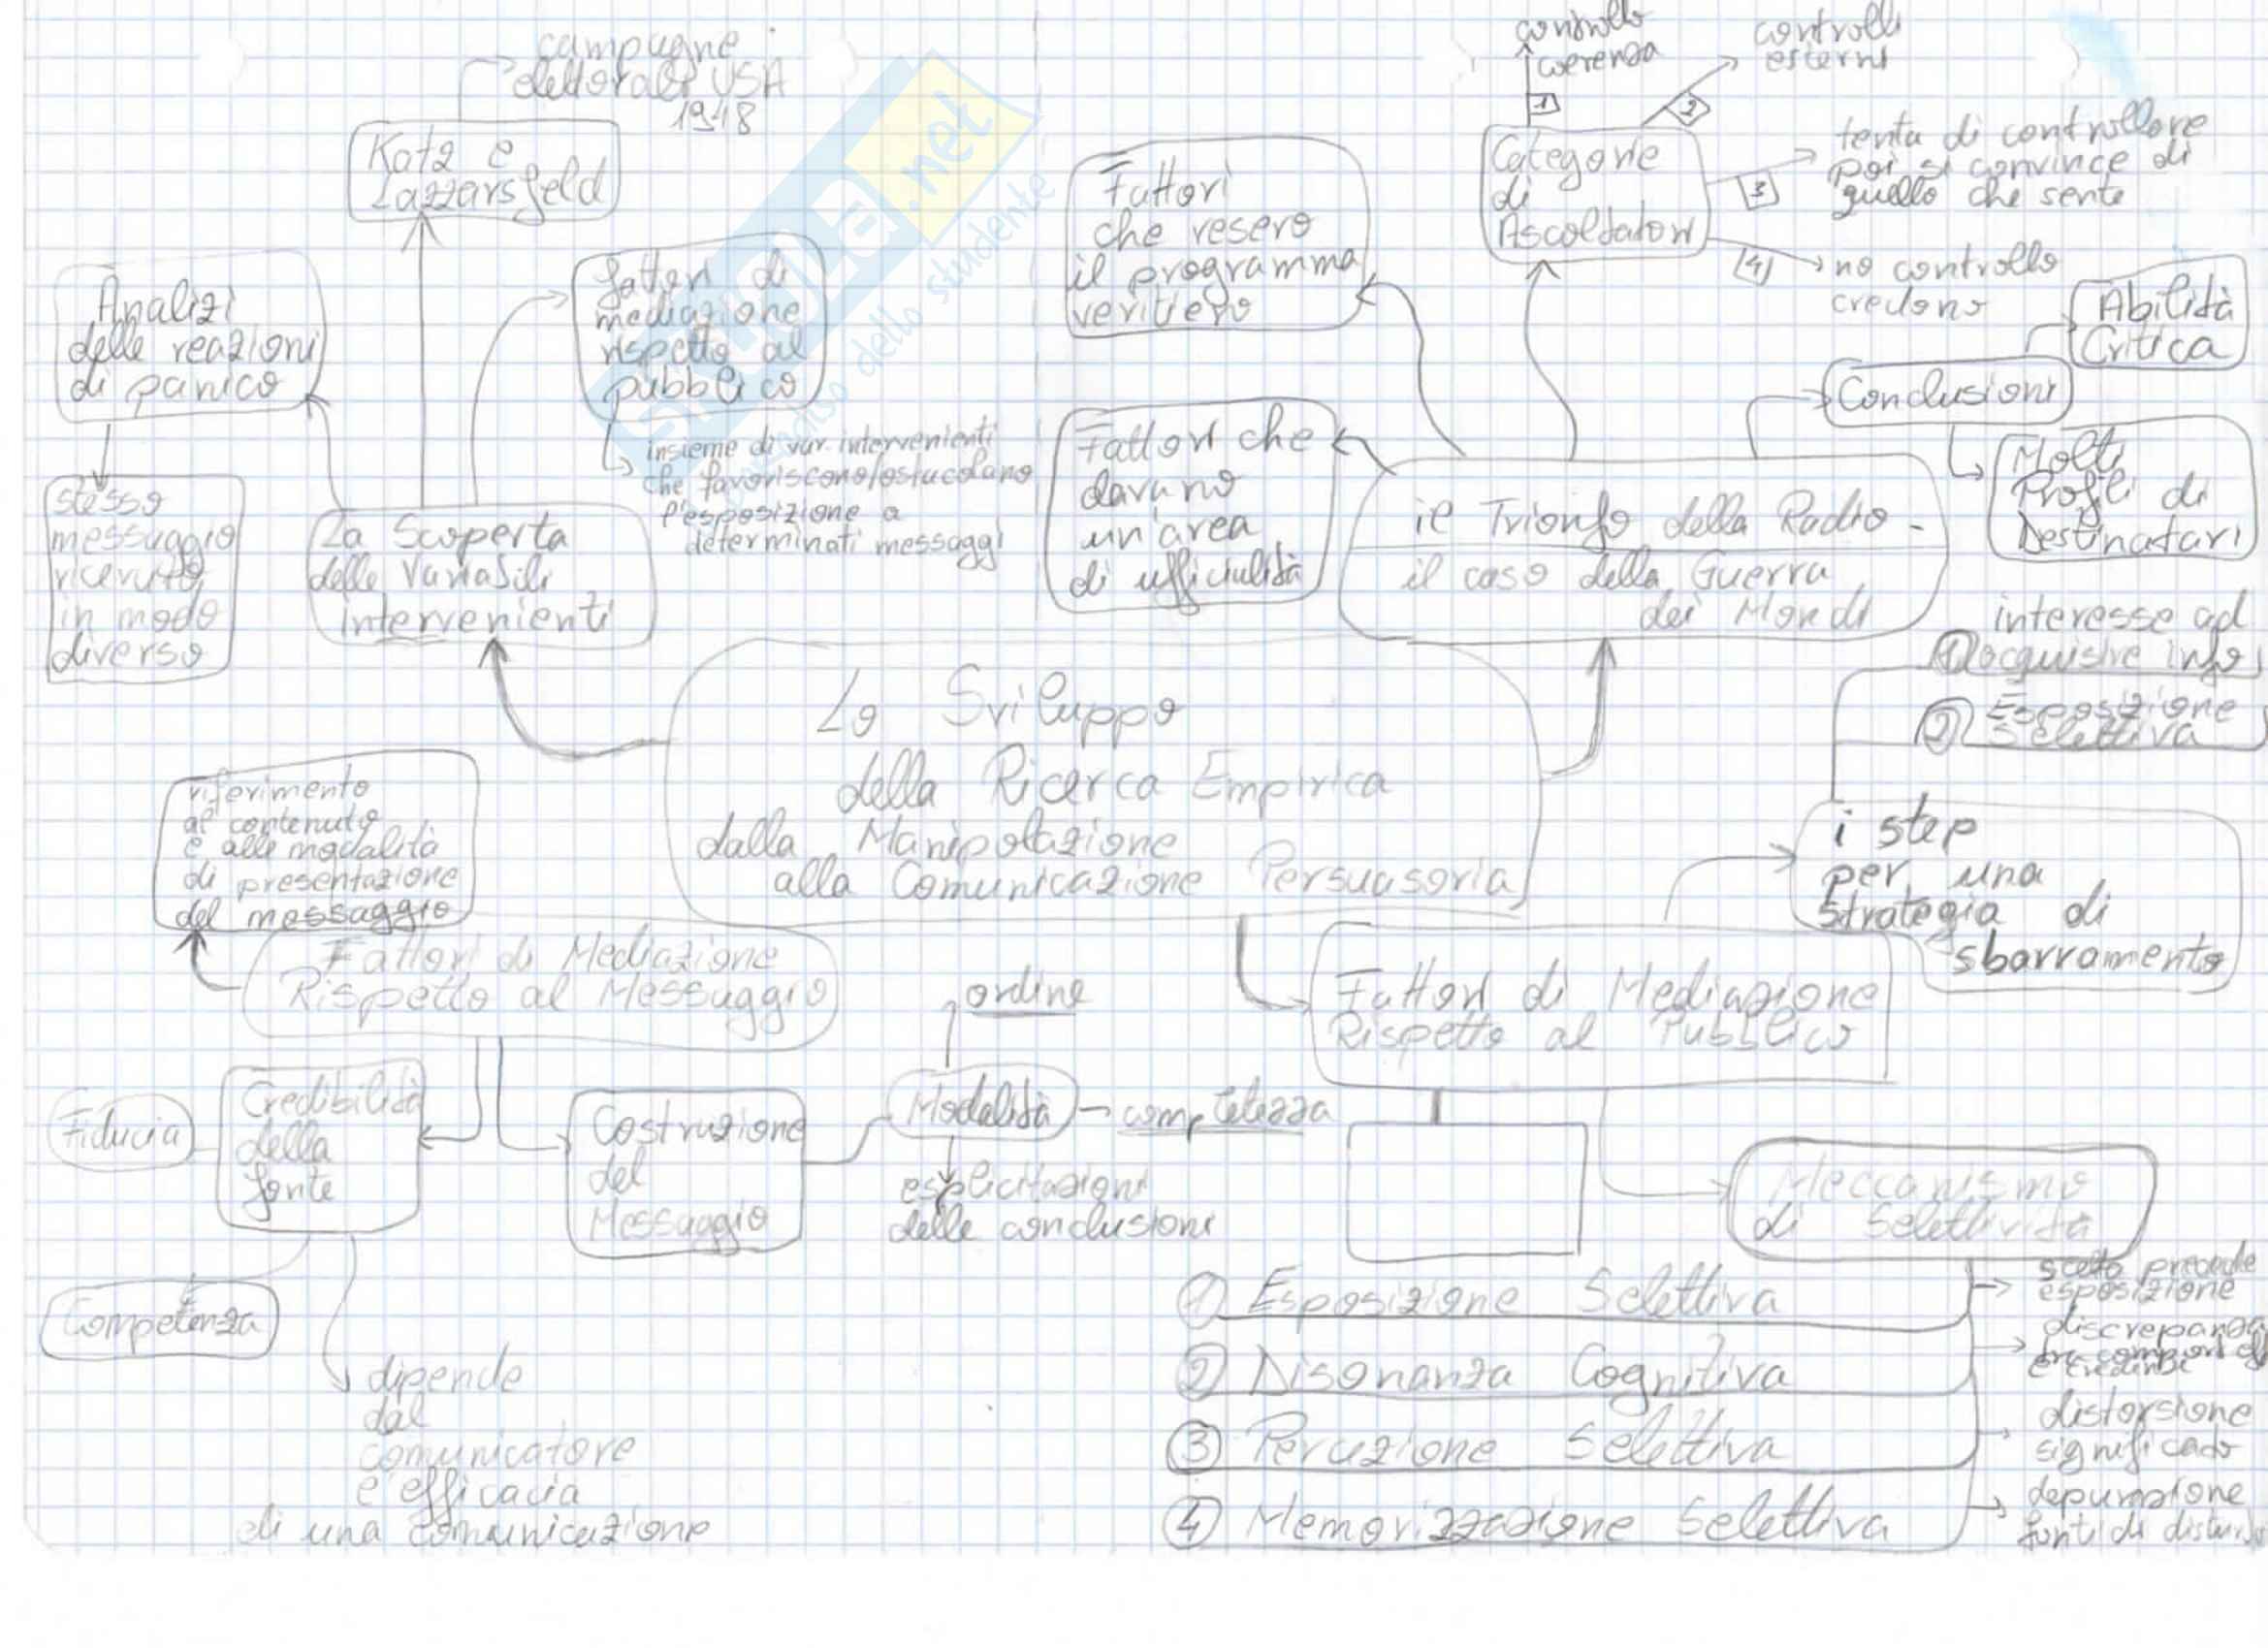 campagne
elettorali USA
1948
Katz e
Lazzarsfeld
Analizi
delle reazioni
di panico
fattori di
mediazione
rispetto al
pubblico
insieme di var. intervenienti
che favoriscono/ostacolano
l'esposizione a
determinati messaggi
stesso
messaggio
ricevuto
in modo
diverso
La Scoperta
delle Variabili
intervenienti
controllo
coerenza
1
controlli
esterni
2
Categorie
di
Ascoltatori
3
tenta di controllare
poi si convince di
quello che sente
4
no controllo
credono
Fattori
che resero
il programma
veritiero
Fattori che
davano
un'area
di ufficialità
Conclusioni
Abilità
Critica
Molti
Profili di
Destinatari
il Trionfo della Radio -
il caso della Guerra
dei Mondi
Lo Sviluppo
della Ricerca Empirica
dalla Manipolazione
alla Comunicazione Persuasoria
interesse ad
1 acquisire info
2 Esposizione
Selettiva
i step
per una
strategia di
sbarramento
riferimento
al contenuto
e alle modalità
di presentazione
del messaggio
Fattori di Mediazione
Rispetto al Messaggio
Fiducia
Credibilità
della
fonte
Competenza
dipende
dal
comunicatore
e efficacia
di una comunicazione
Costruzione
del
Messaggio
ordine
Modalità - completezza
esplicitazioni
delle conclusioni
Fattori di Mediazione
Rispetto al Pubblico
Meccanismo
di Selettività
1 Esposizione Selettiva
scelta precede
esposizione
2 Disonanza Cognitiva
discrepanza
tra comport
e credenze
3 Percezione Selettiva
distorsione
significato
4 Memorizzazione Selettiva
depurazione
fonti di
skuola.net
dello studente